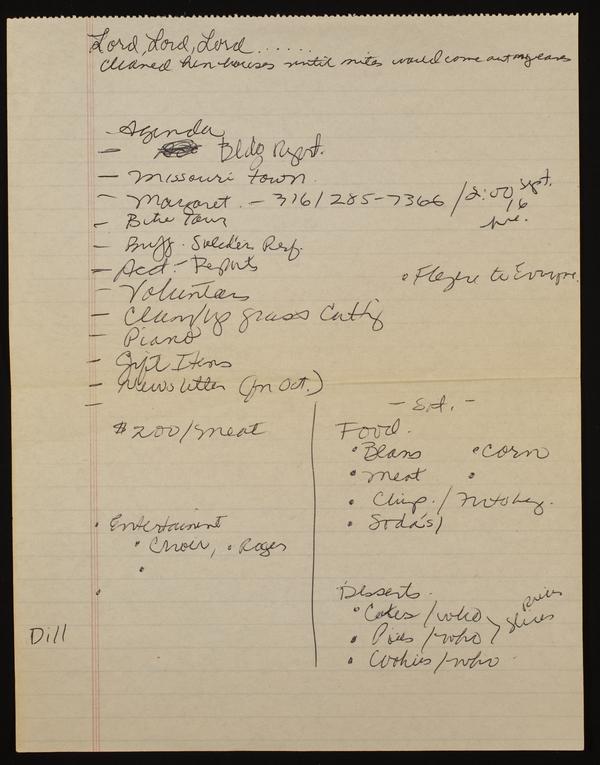 Lord, Lord, Lord ......
Cleaned hen-houses until mites would come out my ears
- Agenda
- Bldg Report.
- Missouri Town
- Margaret. - 316/285-7366 / 2:00 Sept. 16
- Bike Tour
- Buff. Soldier Ref.
- Acct. - Reports
- Volunteers
• Flyers to
- Clean/up grass Cutting
- Piano
- Gift Items
- Newsletter (in Oct.)
-
$200/meat
• Entertainment
• Choir, • Roger
•
•
Dill
- Sat. -
Food.
• Beans • Corn
• Meat •
• Chips /
• Soda's/
Desserts.
• Cakes / who
• Pies / who > Slices
• Cookies / who